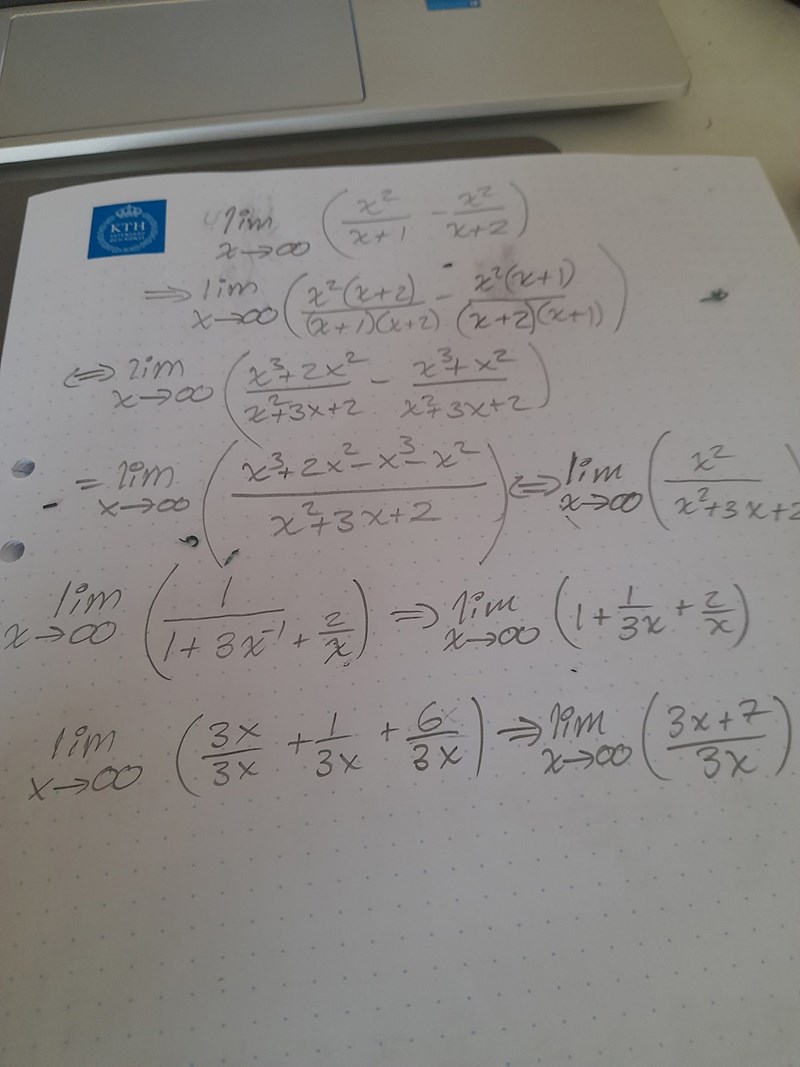 KTH
lim x→∞ (x²/(x+1) - x²/(x+2))
⇒ lim x→∞ (x²(x+2)/((x+1)(x+2)) - x²(x+1)/((x+2)(x+1)))
⇔ lim x→∞ ((x³+2x²)/(x²+3x+2) - (x³+x²)/(x²+3x+2))
= lim x→∞ ((x³+2x²-x³-x²)/(x²+3x+2)) ⇔ lim x→∞ (x²/(x²+3x+2
lim x→∞ (1/(1+3x⁻¹+2/x)) ⇒ lim x→∞ (1+1/3x+2/x)
lim x→∞ (3x/3x+1/3x+6/3x) ⇒ lim x→∞ ((3x+7)/3x)